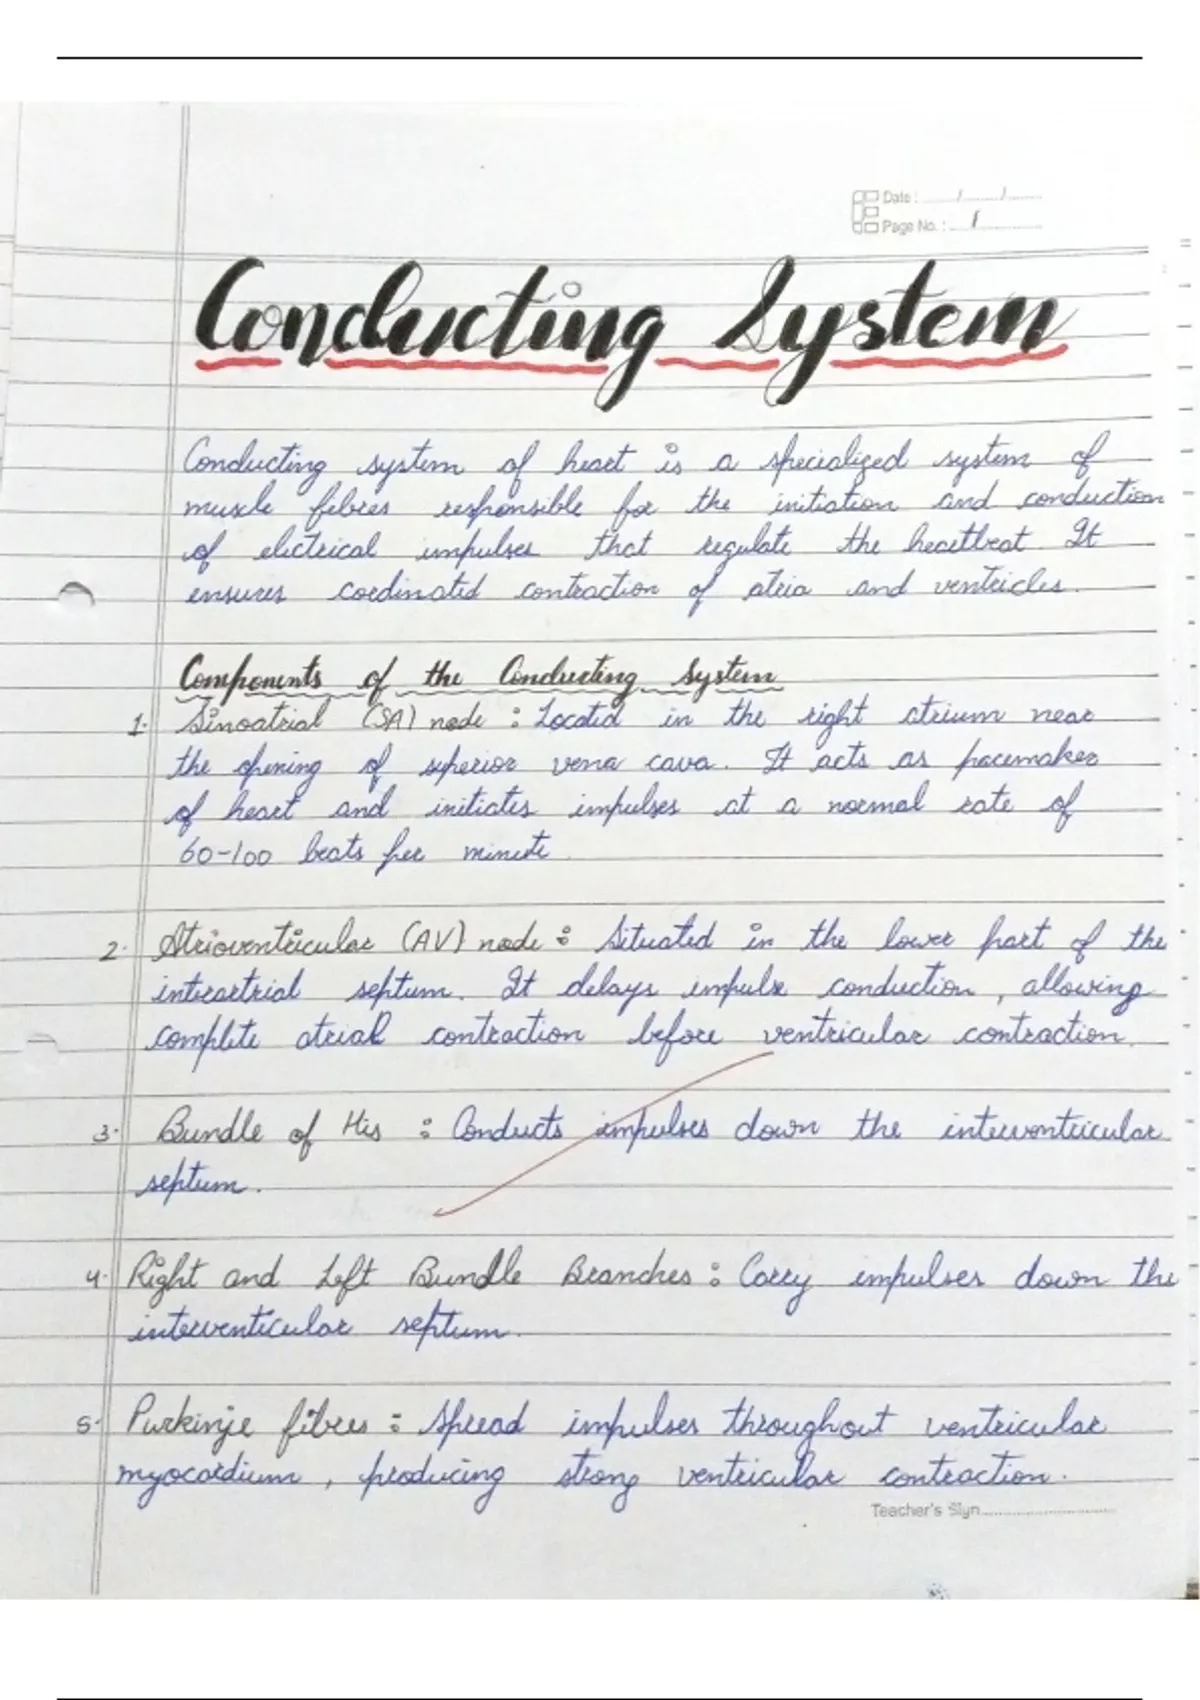 Date : ......../........./.........
Page No. : 1
Conducting System
Conducting system of heart is a specialized system of
muscle fibres responsible for the initiation and conduction
of electrical impulses that regulate the heartbeat. It
ensures cordinated contraction of atria and ventricles.
Components of the Conducting System
1. Sinoatrial (SA) node : Located in the right atrium near
the opening of superior vena cava. It acts as pacemaker
of heart and initiates impulses at a normal rate of
60-100 beats per minute.
2. Atrioventricular (AV) node : Situated in the lower part of the
interartrial septum. It delays impulse conduction, allowing
complete atrial contraction before ventricular contraction.
3. Bundle of His : Conducts impulses down the interventricular
septum.
4. Right and Left Bundle Branches : Carry impulses down the
interventicular septum.
5. Purkinje fibres : Spread impulses throughout ventricular
myocardium, producing strong ventricular contraction.
Teacher's Sign..................................